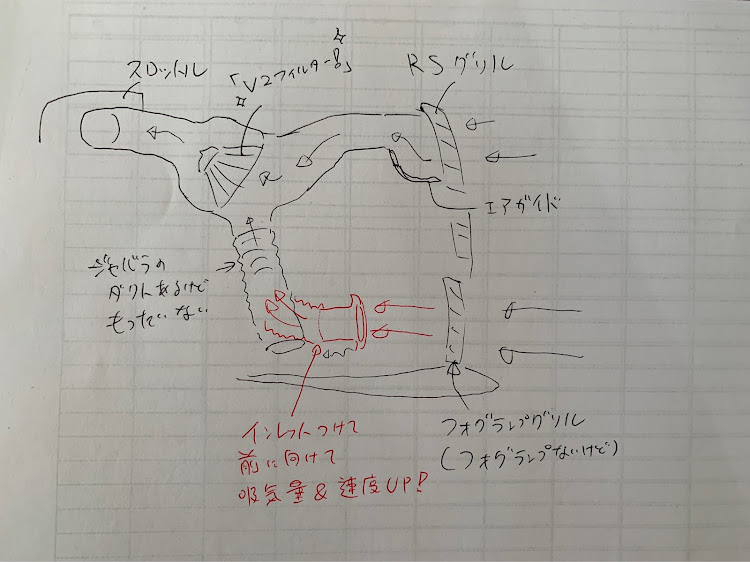 スロットル
「V2フィルター!!」
RSグリル
エアガイド
ジャバラの
ダクトあるけど
もったいない
インレットつけて
前に向けて
吸気量&速度UP!
フォグランプグリル
(フォグランプないけど)